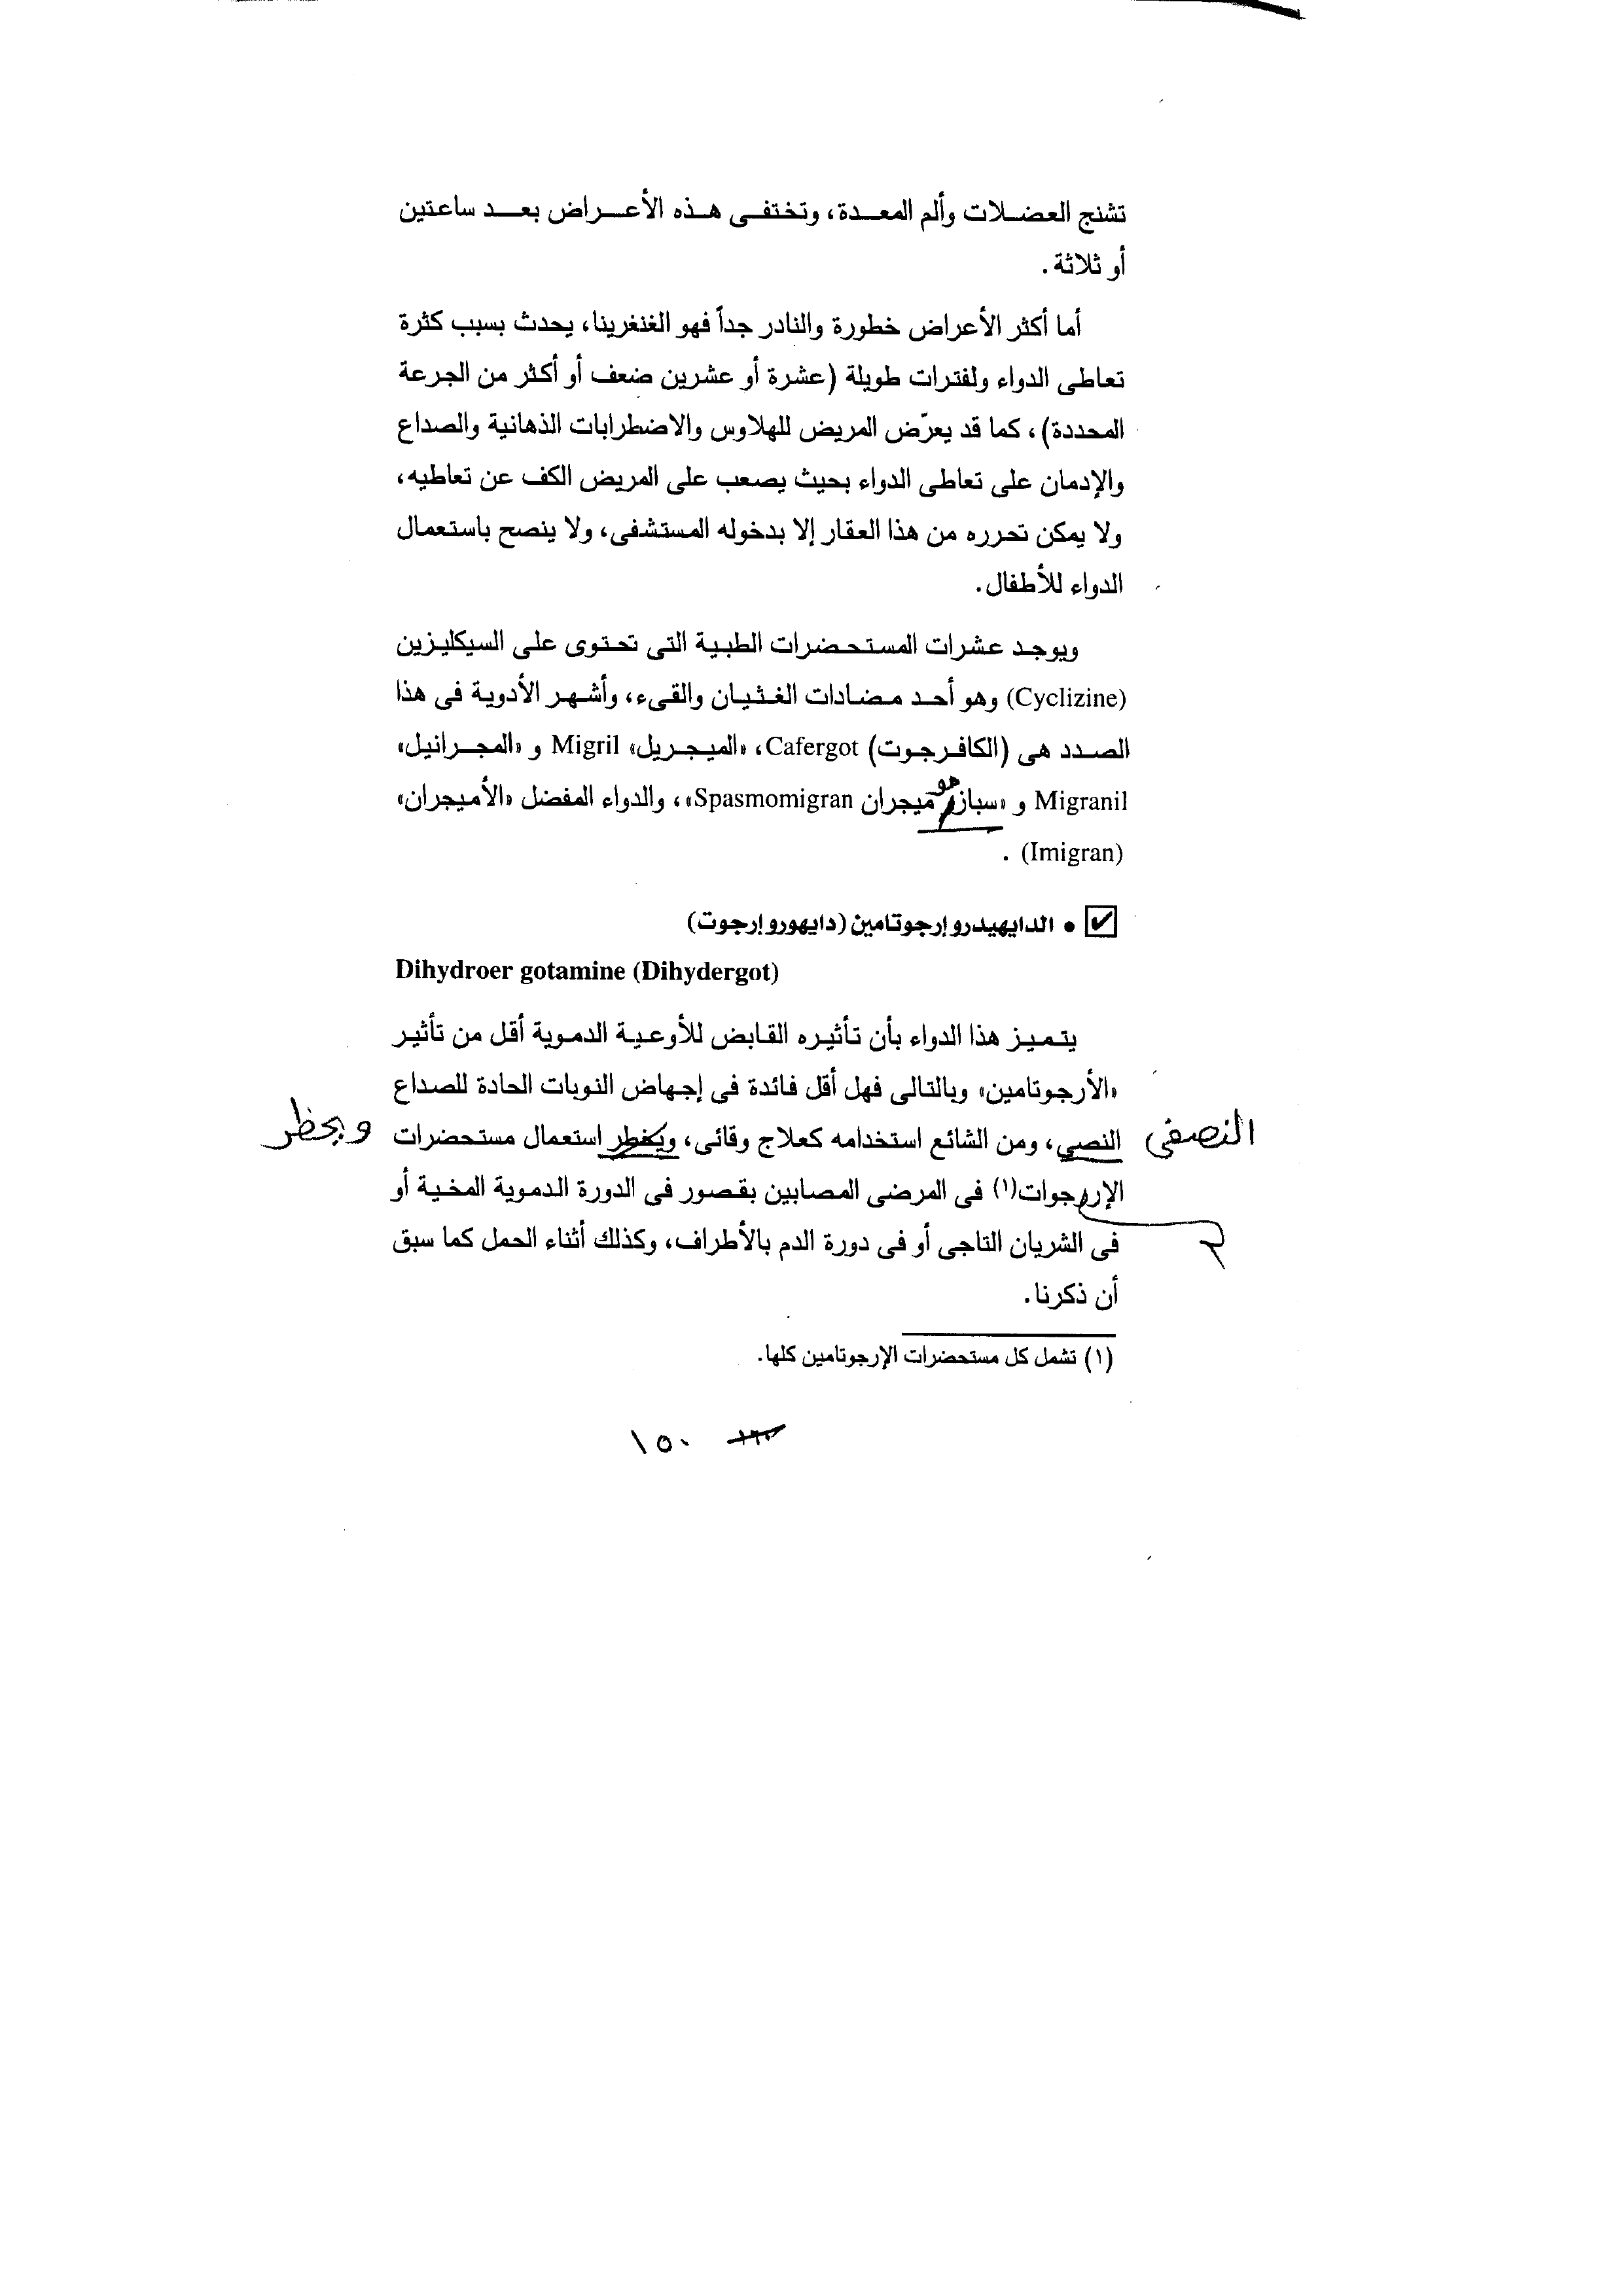 تشنج العضلات وألم المعدة، وتختفى هذه الأعراض بعد ساعتين
أو ثلاثة.
أما أكثر الأعراض خطورة والنادر جداً فهو الغنغرينا، يحدث بسبب كثرة
تعاطى الدواء ولفترات طويلة (عشرة أو عشرين ضعف أو أكثر من الجرعة
المحددة)، كما قد يعرّض المريض للهلاوس والاضطرابات الذهانية والصداع
والإدمان على تعاطى الدواء بحيث يصعب على المريض الكف عن تعاطيه،
ولا يمكن تحرره من هذا العقار إلا بدخوله المستشفى، ولا ينصح باستعمال
الدواء للأطفال.
ويوجد عشرات المستحضرات الطبية التى تحتوى على السيكليزين
(Cyclizine) وهو أحد مضادات الغثيان والقىء، وأشهر الأدوية فى هذا
الصدد هى (الكافرجوت) Cafergot، «الميجريل» Migril و «المجرانيل»
Migranil و «سبازموميجران Spasmomigran»، والدواء المفضل «الأميجران»
(Imigran) .
• الدايهيدروإرجوتامين (دايهورو‌إرجوت)
Dihydroer gotamine (Dihydergot)
يتميز هذا الدواء بأن تأثيره القابض للأوعية الدموية أقل من تأثير
«الأرجوتامين» وبالتالى فهل أقل فائدة فى إجهاض النوبات الحادة للصداع
النصفى النصي، ومن الشائع استخدامه كعلاج وقائى، استعمال مستحضرات ويحظر
الإررجوات(١) فى المرضى المصابين بقصور فى الدورة الدموية المخية أو
فى الشريان التاجى أو فى دورة الدم بالأطراف، وكذلك أثناء الحمل كما سبق
أن ذكرنا.
(١) تشمل كل مستحضرات الإرجوتامين كلها.
١٥٠